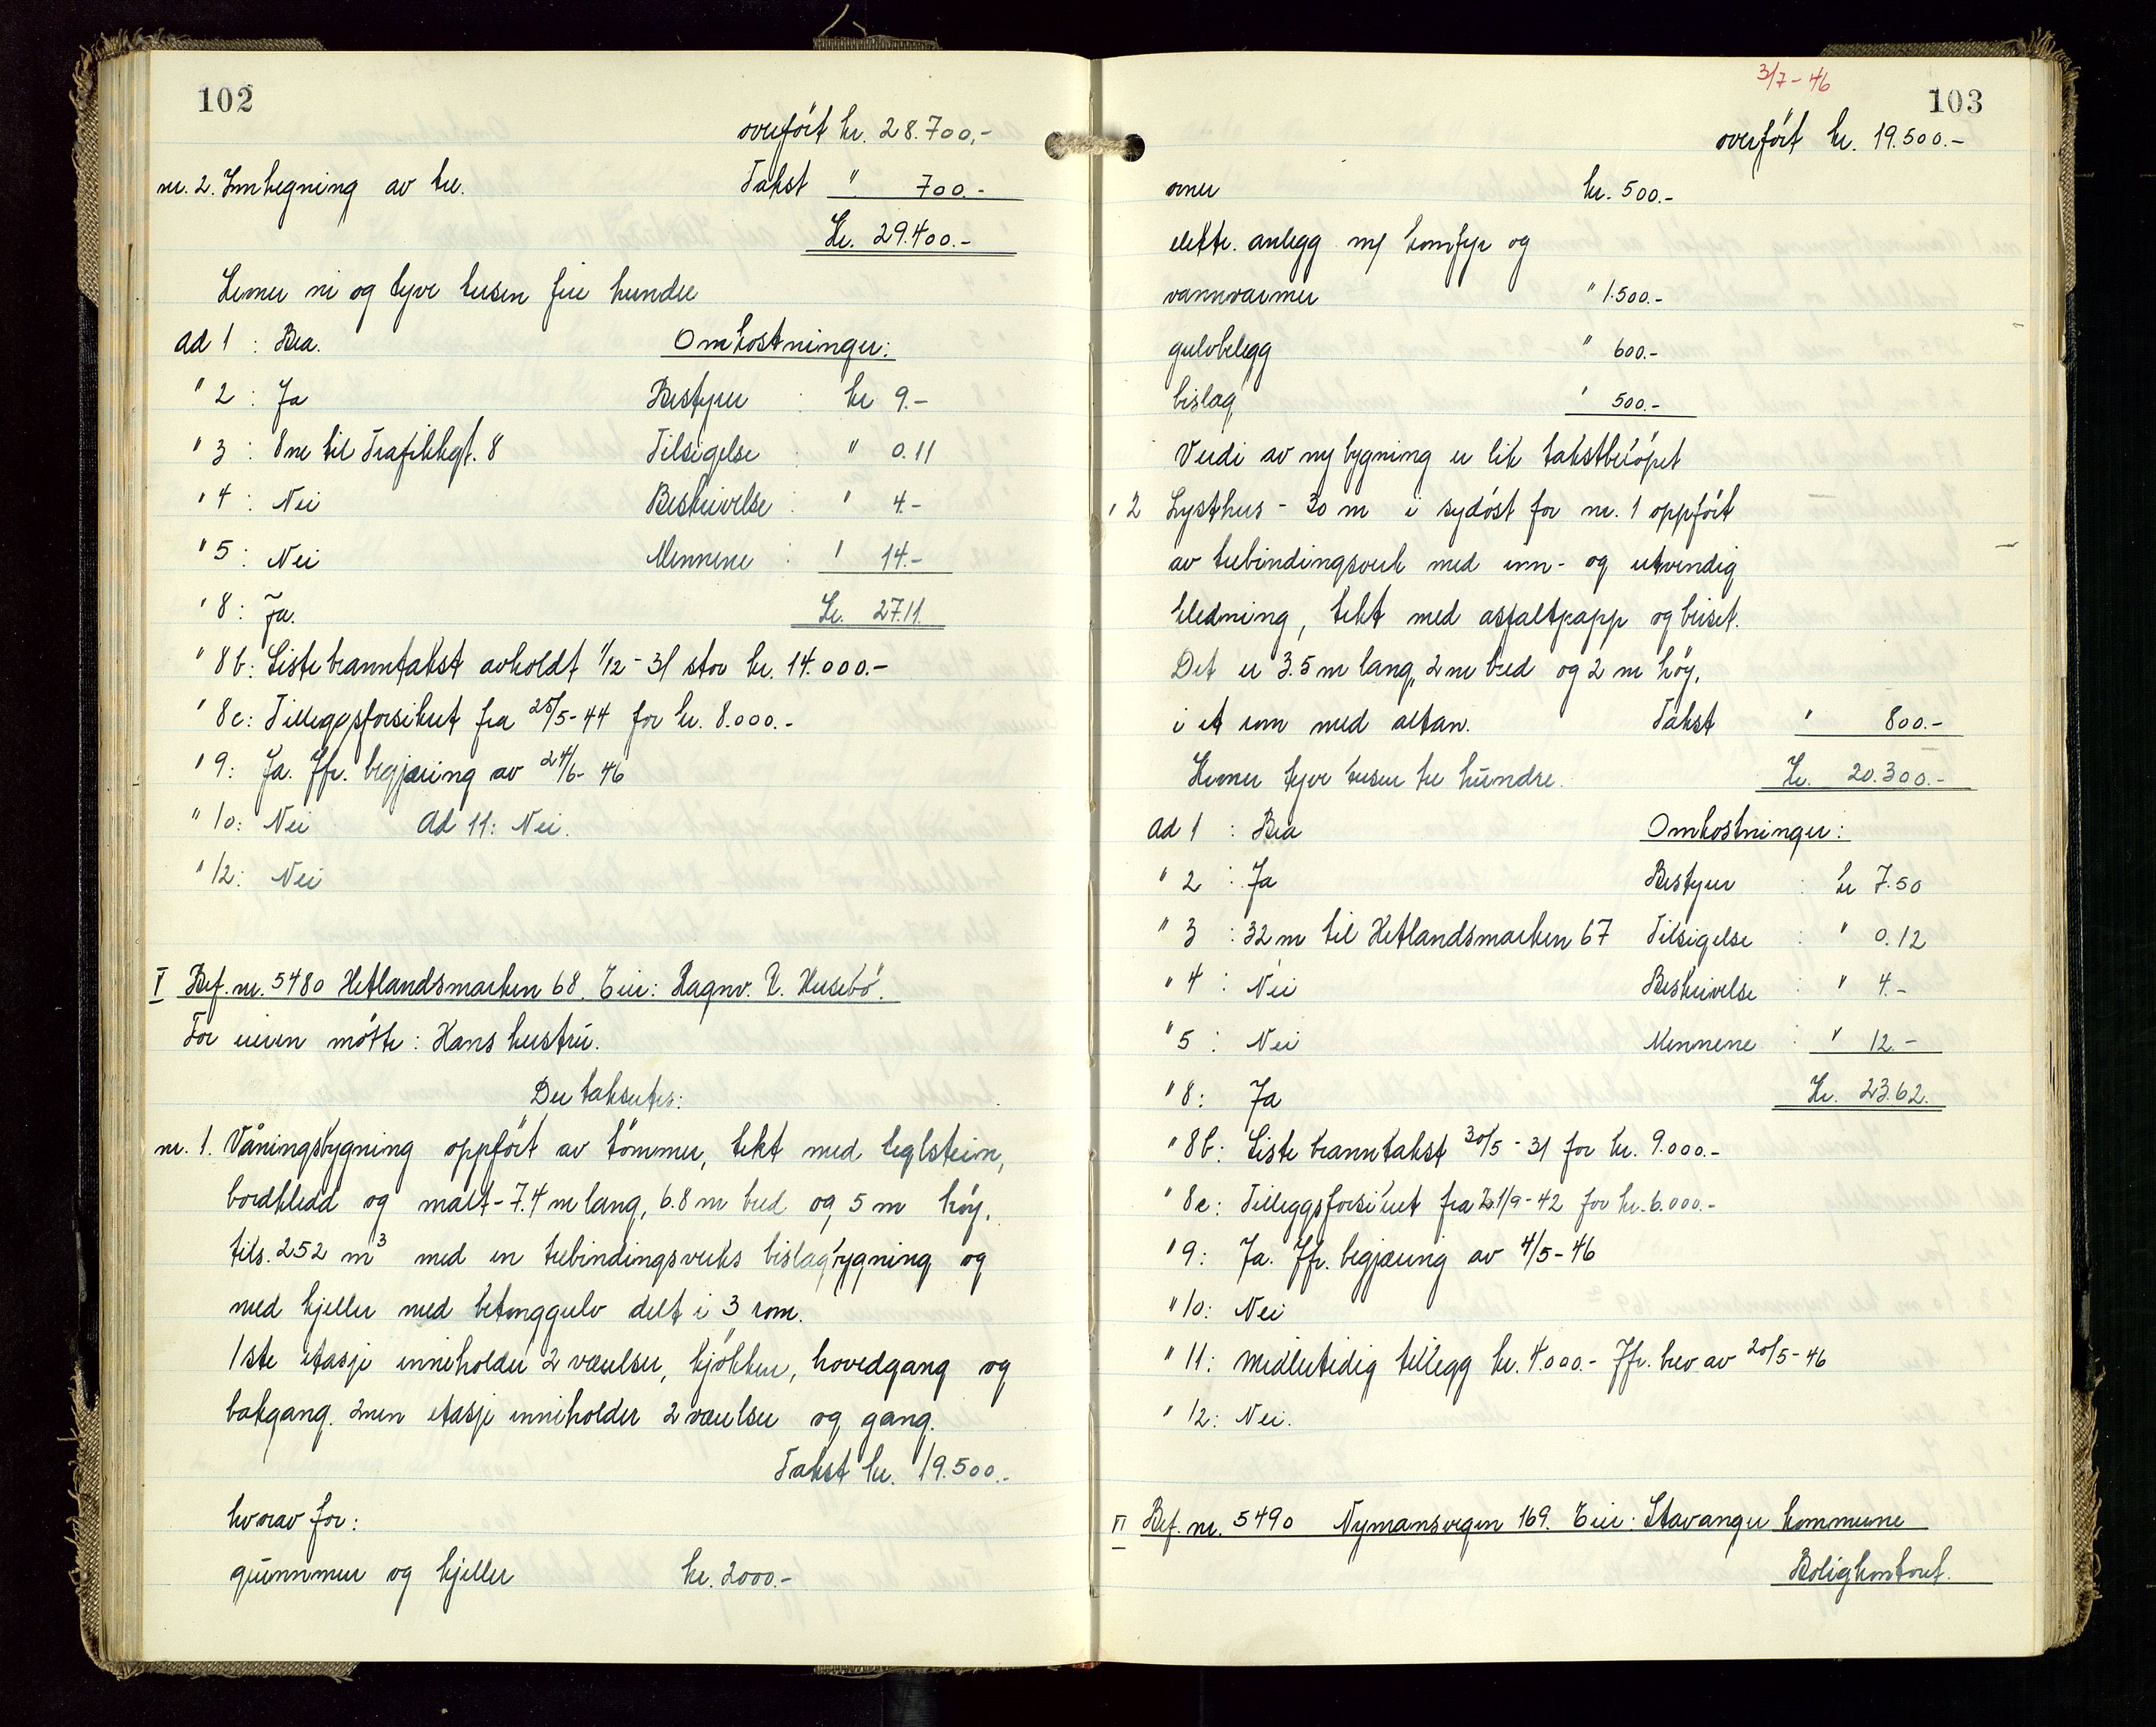 102
overfört kr. 28.700,-
nr. 2. Innhegning av tre. Takst " 700.-
Kr. 29.400.-
Kroner ni og tyve tusen fire hundre
Ad 1 : Bra. Omkostninger:
" 2 : Ja Bestyrer : kr 9.-
" 3 : 8 m til Trafikkgt. 8 Tilsigelse : " 0.11
" 4 : Nei Beskrivelse : " 4.-
" 5 : Nei Mennene : " 14.-
" 8 : Ja. Kr. 27.11.
" 8 b: Siste branntakst avholdt 1/12 - 31 stor kr. 14.000.-
" 8 c: Tilleggsforsikret fra 25/5 - 44 for kr. 8.000.-
" 9: Ja. Jfr. begjæring av 24/6 - 46
" 10: Nei Ad 11: Nei.
" 12: Nei
V Bef. nr. 5480 Hetlandsmarken 68. Eier: Ragnv. V. Husebö.
For eieren mötte: Hans hustru.
Der takseres:
nr. 1. Våningsbygning oppfört av tömmer, tekt med teglstein,
bordkledd og malt - 7.4 m lang, 6.8 m bred og 5 m höy,
tils. 252 m³ med en trebindingsverks bislagbygning og
med kjeller med betonggulv delt i 3 rom.
1ste etasje inneholder 2 værelser, kjökken, hovedgang og
bakgang. 2nen etasje inneholder 2 værelser og gang.
Takst kr. 19.500.-
hvorav for:
grunnmur og kjeller kr. 2000.-
3/7 - 46
103
overfört kr. 19.500.-
ovner kr. 500.-
elektr. anlegg m/ komfyr og
vannvarmer " 1.500.-
gulvbelegg " 600.-
bislag " 500.-
Verdi av ny bygning er lik takstbelöpet
" 2 Lysthus - 30 m i sydöst for nr. 1 oppfört
av trebindingsverk med inn- og utvendig
kledning, tekt med asfaltpapp og beiset.
Det er 3.5 m lang, 2 m bred og 2 m höy,
i et rom med altan. Takst " 800.-
Kroner tyve tusen tre hundre. Kr. 20.300.-
Ad 1 : Bra Omkostninger:
" 2 : Ja Bestyrer : kr 7.50
" 3 : 32 m til Hetlandsmarken 67 Tilsigelse : " 0.12
" 4 : Nei Beskrivelse : " 4.-
" 5 : Nei Mennene : " 12.-
" 8: Ja Kr. 23.62.
" 8 b: Siste branntakst 30/5 - 31 for kr. 9.000.-
" 8 c: Tilleggsforsikret fra 21/9 - 42 for kr. 6.000.-
" 9: Ja. Jfr. begjæring av 4/5 - 46
" 10: Nei
" 11: Midlertidig tillegg kr. 4.000.- Jfr. brev av 20/5 - 46
" 12: Nei.
VI Bef. nr. 5490 Nymansvegen 169. Eier: Stavanger kommune
Boligkontoret.